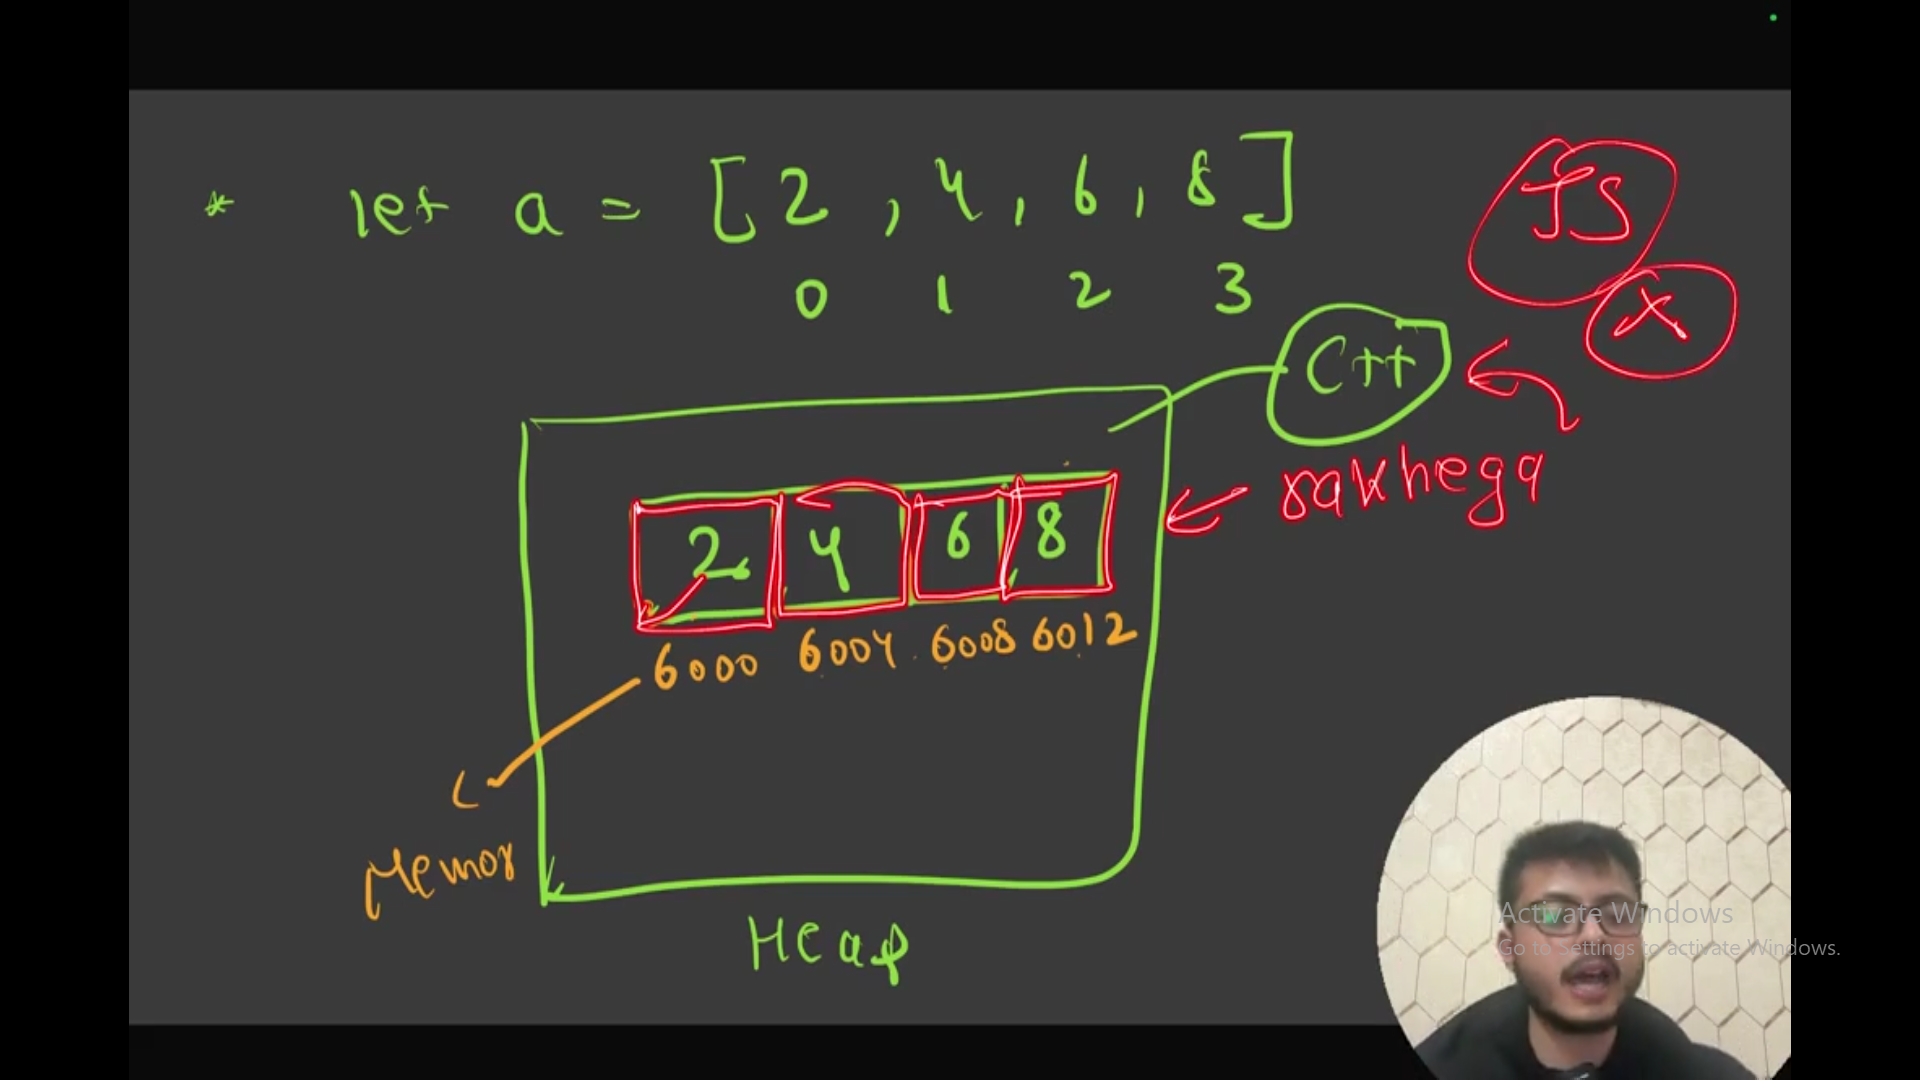 * let a = [2, 4, 6, 8]
JS
0 1 2 3
X
C++
rakhega
2 4 6 8
6000 6004 6008 6012
Memor
Heap
Activate Windows
Go to Settings to activate Windows.